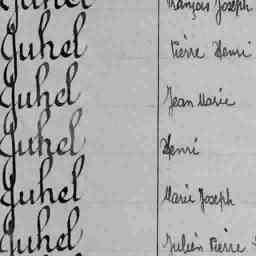 Juhel François Joseph
Juhel Pierre Henri
Juhel Jean Marie
Juhel Henri
Juhel Marie Joseph
Juhel Julien Pierre